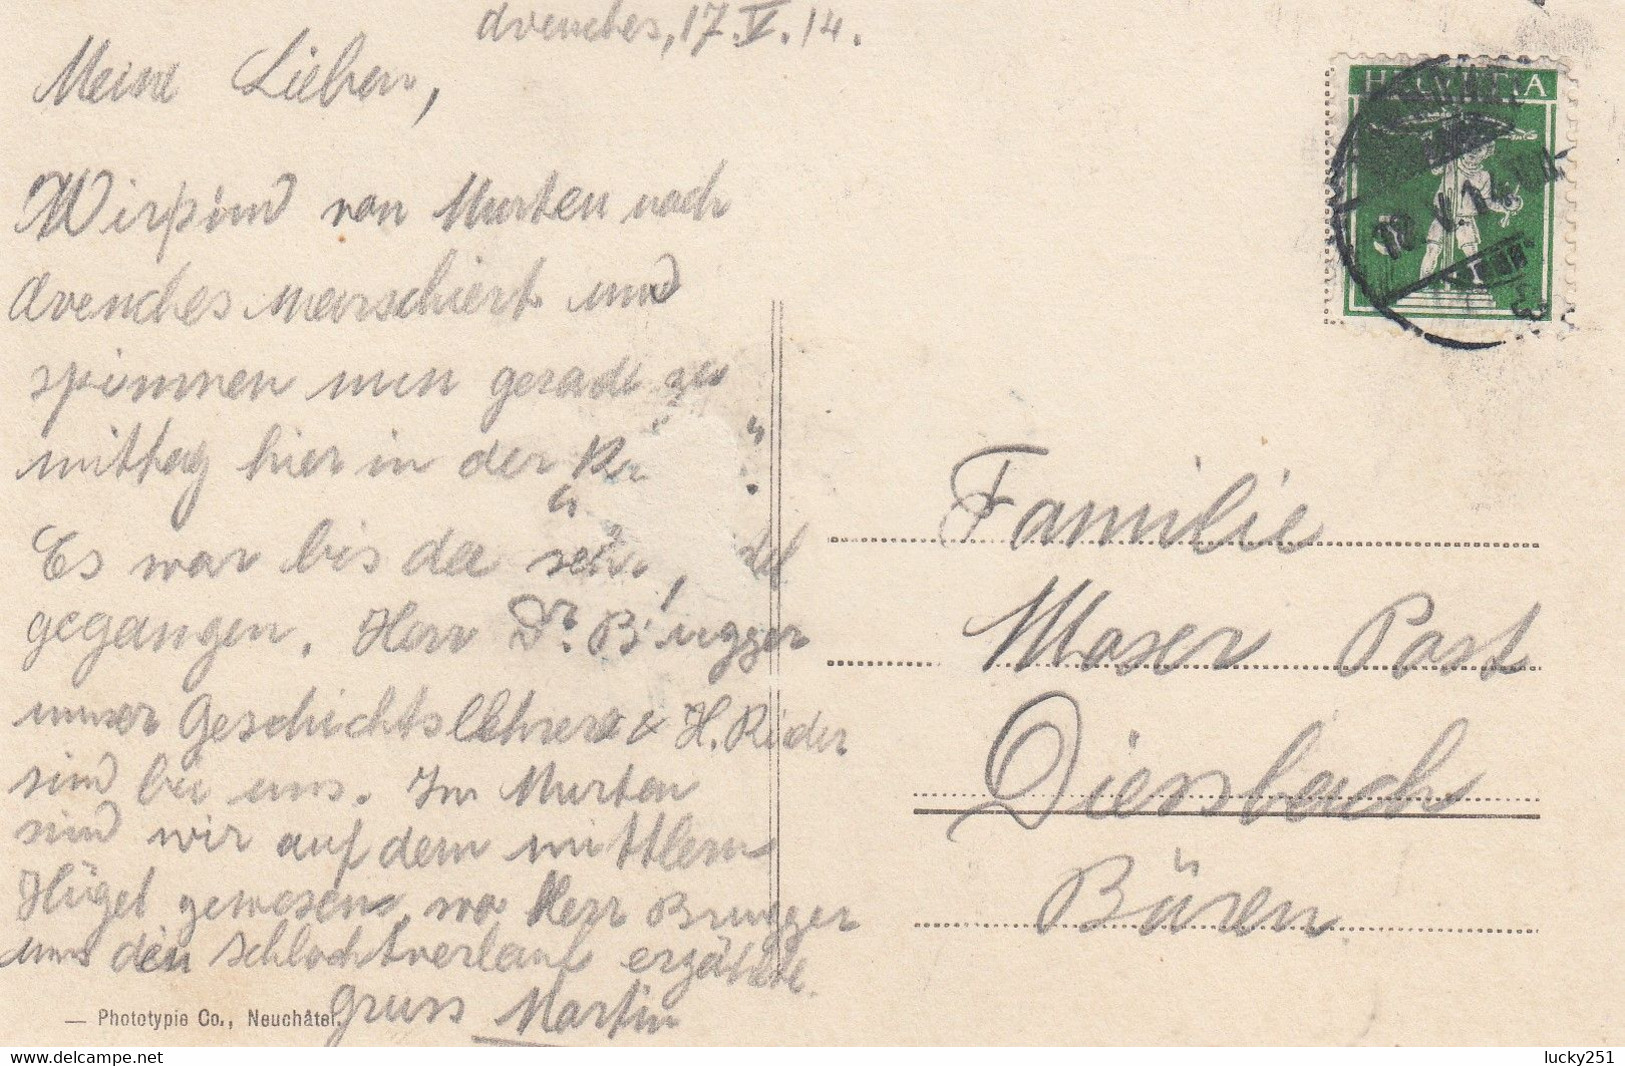 Avenches, 17.V.14.
Meine Lieben,
Wir sind von Murten nach
Avenches marschiert und
spinnen nun gerade zu
mittag hier in der
Es war bis da
gegangen. Herr Dr. Brugger
unser Geschichtslehrer & H. Rieder
sind bei uns. In Murten
sind wir auf dem mittlern
Hügel gewesen, wo Herr Brugger
uns den Schlachtverlauf erzählte.
Gruss Martin
— Phototypie Co., Neuchâtel.
HELVETIA
Familie
Moser Post
Diesbach
Büren
lucky251